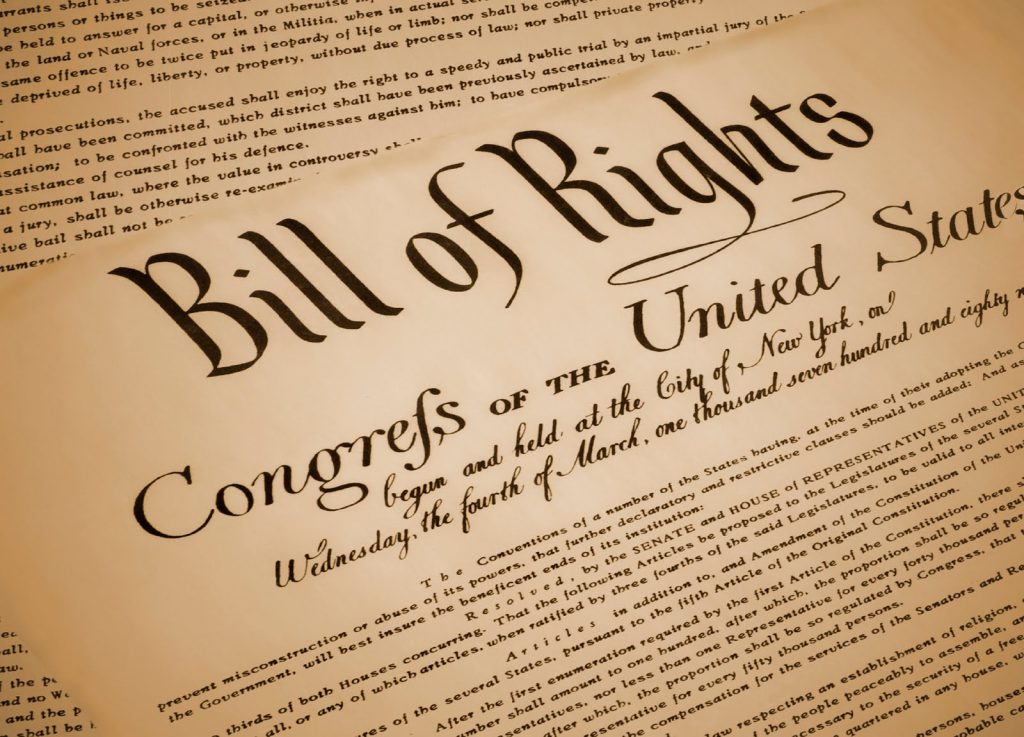 shall
persons or things to be
be held to answer for a capital, or otherwise
the land or Naval forces, or in the Militia, when in actual
same offence to be twice put in jeopardy of life or limb; nor shall be
deprived of life, liberty, or property, without due process of law; nor shall private property
al prosecutions, the accused shall enjoy the right to a speedy and public trial by an impartial jury of the
hall have been committed, which district shall have been previously ascertained by law,
sation; to be confronted with the witnesses against him; to have compulsory
assistance of counsel for his defence.
at common law, where the value in controversy
a jury, shall be otherwise
ive bail shall not be
Bill of Rights
Congreſs OF THE United States
begun and held at the City of New York, on
Wednesday, the fourth of March, one thousand seven hundred and eighty
The Conventions of a number of the States having, at the time of their adopting the
prevent misconstruction or abuse of its powers, that further declaratory and restrictive clauses should be added: And as
the Government, will best insure the beneficent ends of its institution:
Resolved, by the SENATE and HOUSE of REPRESENTATIVES of the UNIT
thirds of both Houses concurring. That the following Articles be proposed to the Legislatures of the several
all, or any of which articles, when ratified by three fourths of the said Legislatures, to be valid to all
Articles in addition to, and Amendment of the Constitution of the
of the several States, pursuant to the fifth Article of the Original Constitution.
After the first enumeration required by the first Article of the Constitution, there
shall amount to one hundred, after which, the proportion shall be so
nor less than one Representative for every forty thousand
after which, the proportion shall be so regulated by Congress, that
for every fifty thousand persons.
the compensation for the services of the Senators and
law respecting an establishment of religion,
of the people peaceably to assemble,
to the security of a
quartered in any house,
persons,
all,
law.
of the
and no
and the p
shall be